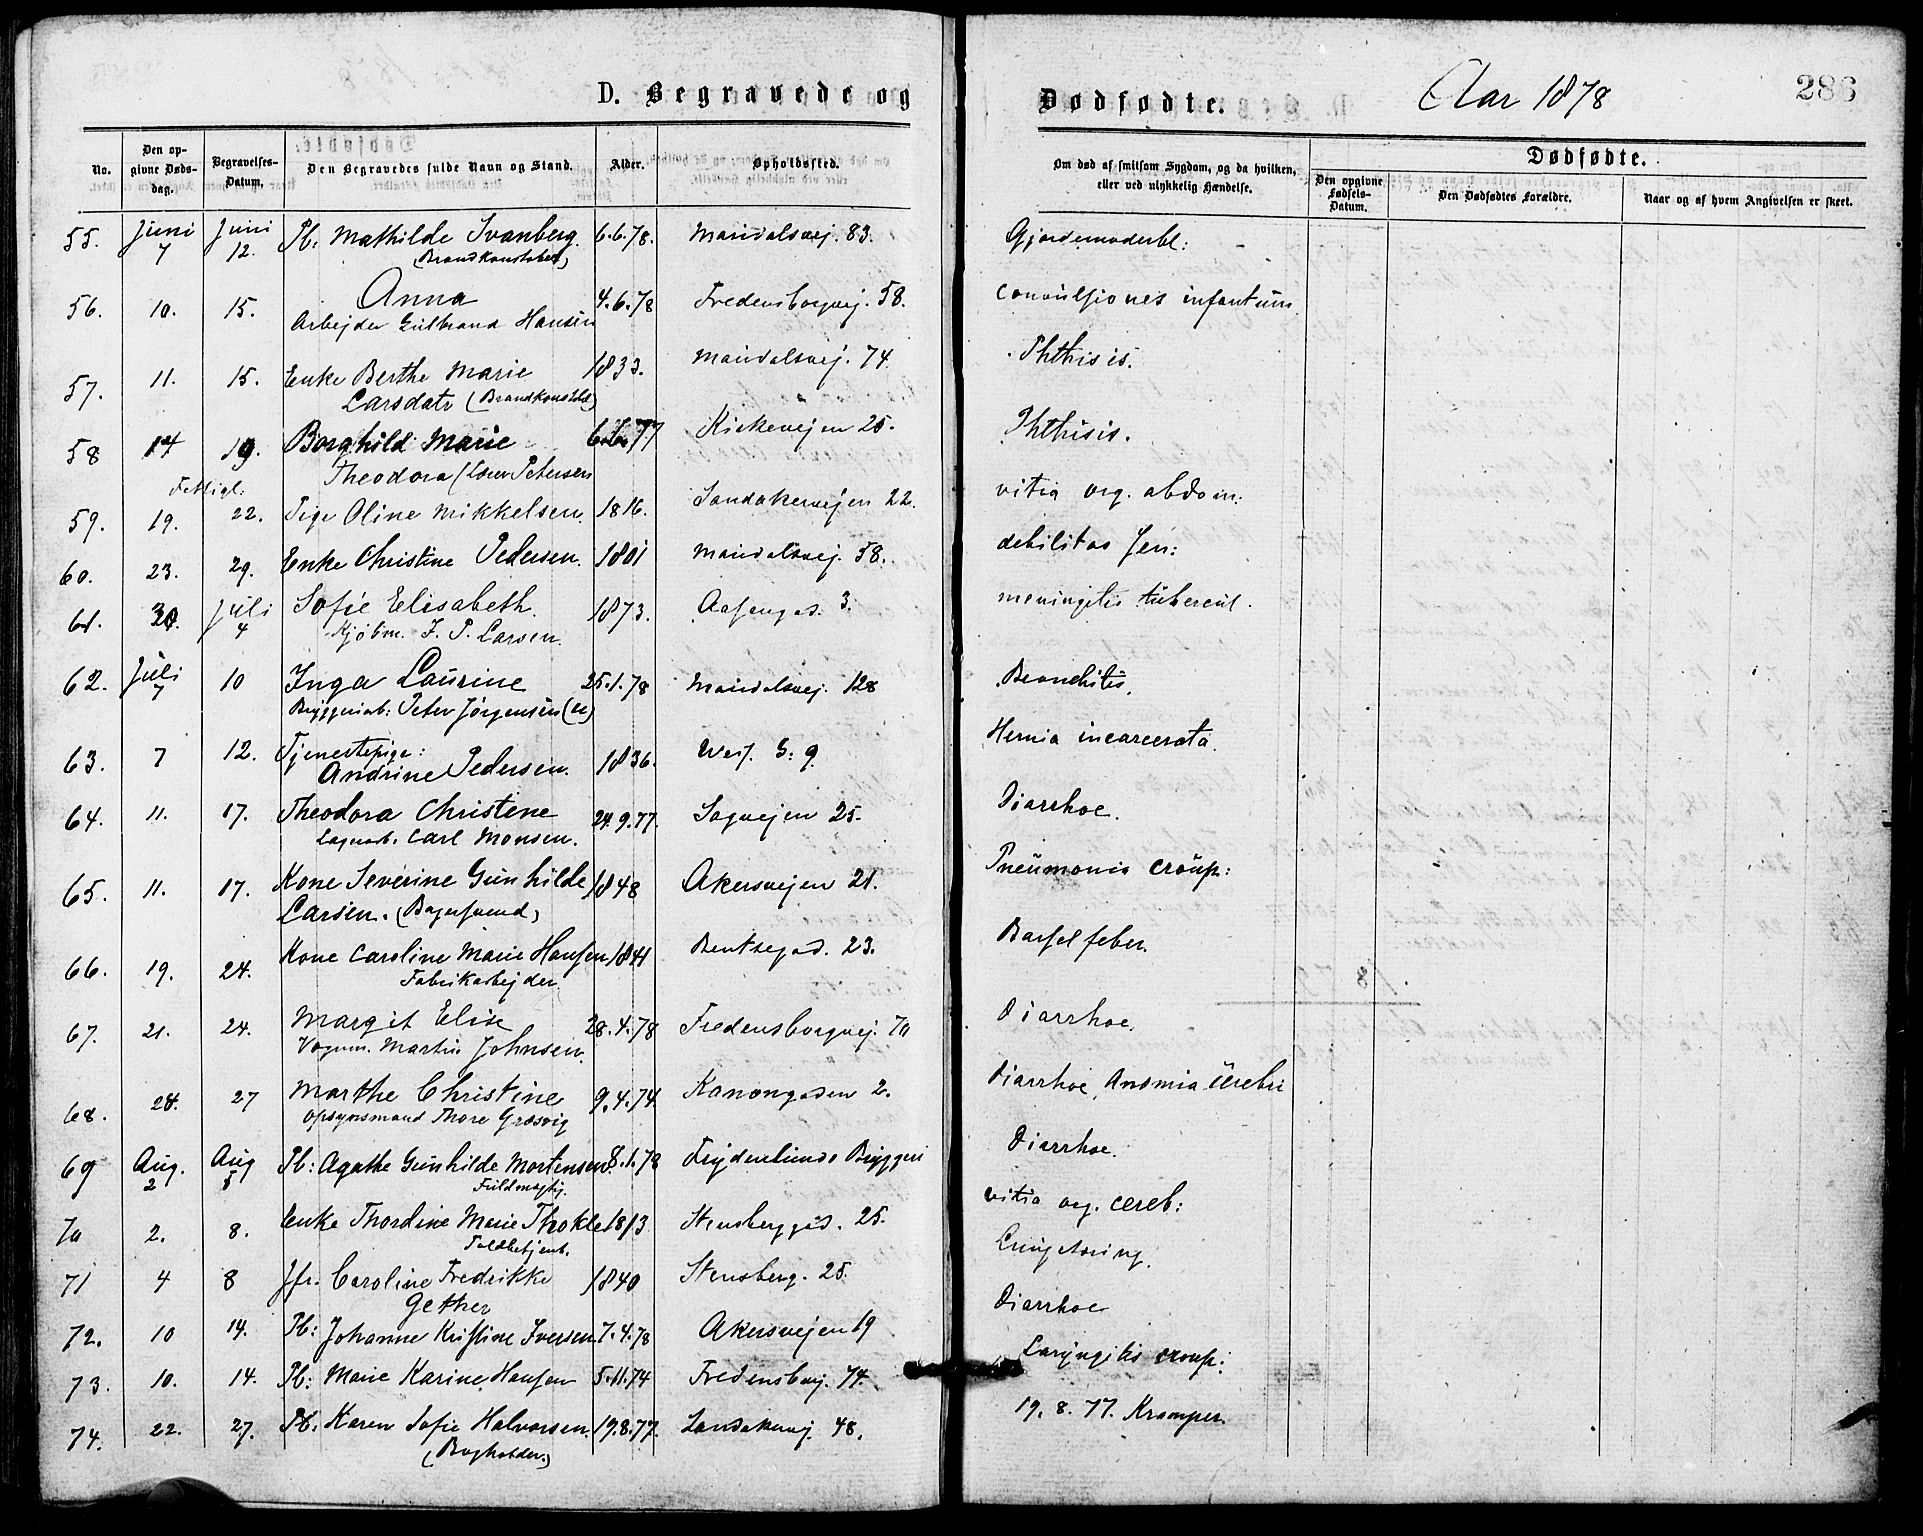 D. Begravede og
Dødfødte.
Aar 1878
286
No.
Den opgivne Dødsdag.
Begravelses-Datum.
Den Begravedes fulde Navn og Stand.
Alder.
Opholdssted.
Om død af smitsom Sygdom, og da hvilken, eller ved ulykkelig Hændelse.
Dødfødte.
Den opgivne Fødsels-Datum.
Den Dødfødtes Forældre.
Naar og af hvem Angivelsen er skeet.
55. Juni 7 Juni 12. Pb: Mathilde Svanberg 6.6.78. Maridalsvej. 83. Gjordemoderbl:
(Brandkonstabel)
56. 10. 15. Anna 4.6.78 Fredensborgvej. 58. Convulsiones infantum.
Arbejder Gulbrand Hansen
57. 11. 15. Enke Berthe Marie 1833. Maridalsvej. 74. Phthisis.
Larsdatr (Brandkonstbl)
58 14 19. Borghild Marie 77 Kirkevejen 25. Phthisis.
Theodora Petersen
Fattigl:
59. 19. 22. Pige Oline Mikkelsen. 1816. Sandakervejen 22. vitia org. abdom:
60. 23. 29. Enke Christine Pedersen. 1801 Maridalsvej. 58. debilitas sen:
61. 30. Juli 4 Sofie Elisabeth. 1873. Aasengad. 3. meningitis tubercul.
Kjøbm. J. P. Larsen.
62. Juli 7 10 Inga Laurine 25.1.78 Maridalsvej. 128 Bronchitis.
Bryggeriarb: Peter Jørgensen (u)
63. 7 12. Tjenestepige: 1836. Wess. G: 9. Hernia incarcerata.
Andrine Pedersen.
64. 11. 17. Theodora Christine 24.9.77. Sagvejen 25. Diarrhoe.
Carl Monsen.
65. 11. 17. Kone Severine Gunhilde 1848 Akersvejen 21. Pneumonia croup:
Larsen. (Bagersvend)
66. 19. 24. Kone Caroline Marie Hansen 1841 Bentsegad. 23. Barselfeber.
Fabrikarbejder.
67. 21. 24. Margit Elise 28.4.78 Fredensborgvej. 70 Diarrhoe.
Vognm. Martin Johnsen.
68. 24. 27 Marthe Christine 9.4.74. Kanongaden 2. Diarrhoe, Anæmia cerebri
Opsynsmand Thore Græsvig
69 Aug. 2 Aug 5 Pb: Agathe Gunhilde Mortensen 8.1.78 Frydenlunds Bryggeri Diarrhoe.
Fuldmægtig.
70 2. 8. Enke Thordine Marie Thokle 1813. Stensberggad. 25. vitia org. cereb:
Toldbetjent.
71 4 8 Jfr. Caroline Fredrikke 1840 Stensberg. 25. Lungetæring.
Gether
72. 10 14. Pb: Johanne Kristine Iversen. 7.4.78 Akersvejen 19 Diarrhoe
73. 10. 14. Pb: Marie Karine Hansen 5.11.74 Fredensbvej. 74. Laryngitis croup:
74. 22. 27. Pb: Karen Sofie Halvorsen. 19.8.77. Sandakervej 48. 19. 8. 77. Kramper.
(Bogholder.)